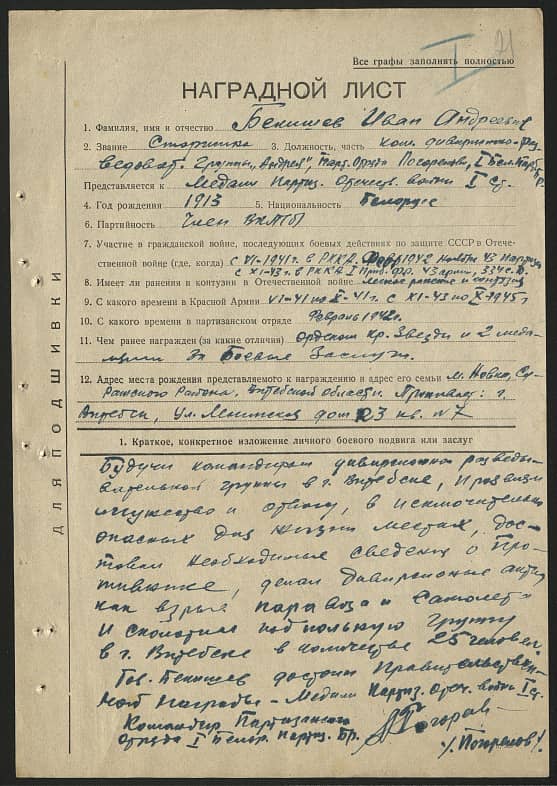 21
I
Все графы заполнять полностью
НАГРАДНОЙ ЛИСТ
1. Фамилия, имя и отчество Бенишев Иван Андреевич
2. Звание Старшина 3. Должность, часть ком. диверсионно-раз
ведоват. группы "Андрея", парт. отряда Погорелова, I Бел. партбр.
Представляется к Медали Партиз. Отечеств. войны I ст.
4. Год рождения 1913 5. Национальность Белорус
6. Партийность Член ВКПб
7. Участие в гражданской войне, последующих боевых действиях по защите СССР в Отече-
ственной войне (где, когда) с VI-1941г. в РККА. 1942 43
с XI-43 г. в РККА I Приб. фр. 43 арм., 334 с.д.
8. Имеет ли ранения и контузии в Отечественной войне легкое ранение и контузия
9. С какого времени в Красной Армии VI-41 по X-41 г. с XI-43 по X-1945 г
10. С какого времени в партизанском отряде Февраль 1942 г.
11. Чем ранее награжден (за какие отличия) Орденом Кр. Звезды и 2 меда-
лями за Боевые Заслуги.
12. Адрес места рождения представляемого к награждению и адрес его семьи м. Новка, Су-
ражского Района. Витебской области. Проживает: г.
Витебск, ул. Ленинская дом 23 кв. №7
ДЛЯ ПОДШИВКИ
1. Краткое, конкретное изложение личного боевого подвига или заслуг
Будучи командиром диверсионно разведы-
вательной группы в г. Витебске, проявил
мужество и отвагу, в исключительно
опасных для жизни местах, дос-
товлял необходимые сведения о про-
тивнике, делал диверсионые акты
как взрыв паравоза и самолет
И сколотил подпольную группу
в г. Витебске в количестве 25 человек.
Тов. Бенишев достоин Правительствен-
ной награды - Медали Партиз. Отеч. войны I ст.
Командир Партизанского
отряда I Белор. Партиз. Бр.
/Погорелов/.